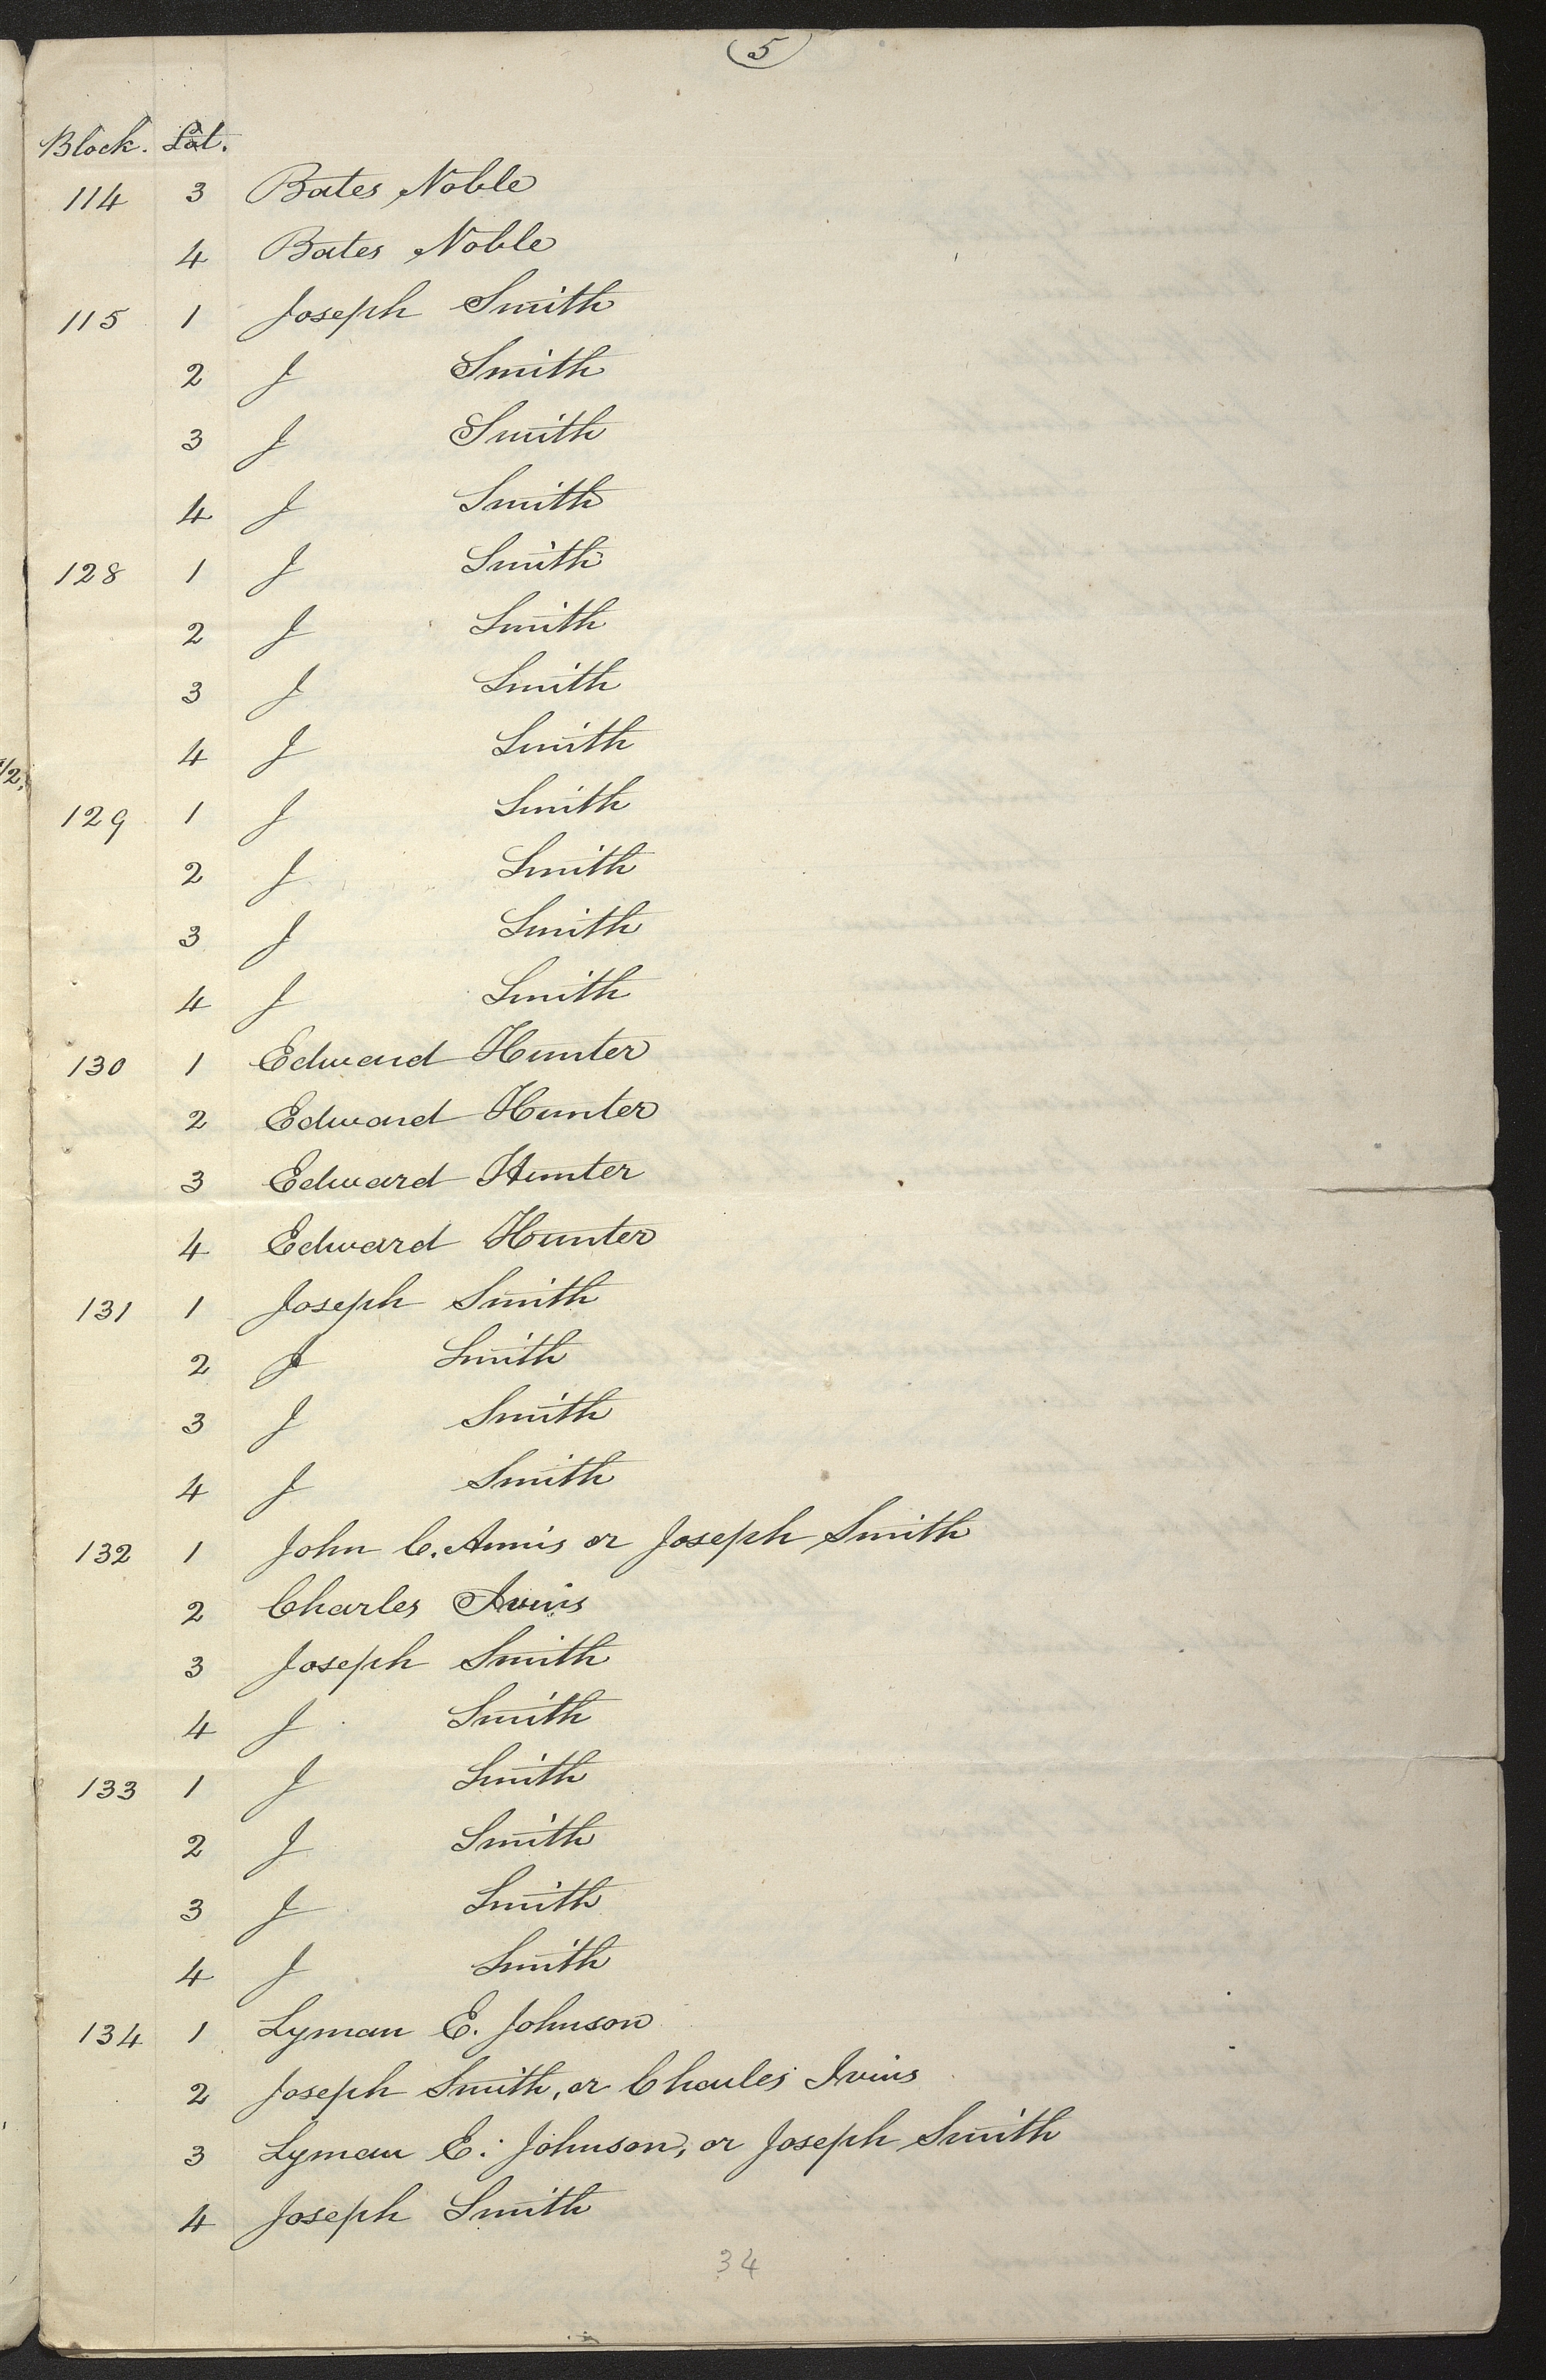 5
Block. Lot.
114 3 Bates Noble
4 Bates Noble
115 1 Joseph Smith
2 J Smith
3 J Smith
4 J Smith
128 1 J Smith
2 J Smith
3 J Smith
4 J Smith
129 1 J Smith
2 J Smith
3 J Smith
4 J Smith
130 1 Edward Hunter
2 Edward Hunter
3 Edward Hunter
4 Edward Hunter
131 1 Joseph Smith
2 J Smith
3 J Smith
4 J Smith
132 1 John C. Annis or Joseph Smith
2 Charles Ivins
3 Joseph Smith
4 J Smith
133 1 J Smith
2 J Smith
3 J Smith
4 J Smith
134 1 Lyman E. Johnson
2 Joseph Smith, or Charles Ivins
3 Lyman E. Johnson, or Joseph Smith
4 Joseph Smith
34